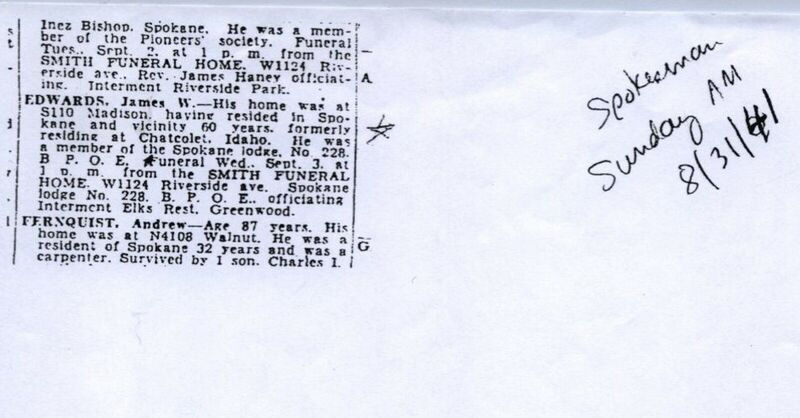 Inez Bishop, Spokane. He was a mem-
ber of the Pioneers' society. Funeral
Tues., Sept. 2, at 1 p. m. from the
SMITH FUNERAL HOME, W1124 Riv-
erside ave., Rev. James Haney officiat-
ing. Interment Riverside Park.
EDWARDS, James W.—His home was at
S110 Madison, having resided in Spo-
kane and vicinity 60 years, formerly
residing at Chatcolet, Idaho. He was
a member of the Spokane lodge, No. 228,
B P. O. E. Funeral Wed., Sept. 3, at
1 p. m. from the SMITH FUNERAL
HOME, W1124 Riverside ave. Spokane
lodge No. 228, B. P. O. E., officiating
Interment Elks Rest, Greenwood.
FERNQUIST, Andrew—Age 87 years. His
home was at N4108 Walnut. He was a
resident of Spokane 32 years and was a
carpenter. Survived by 1 son, Charles I.
A
G
Spokesman
Sunday AM
8/31/41